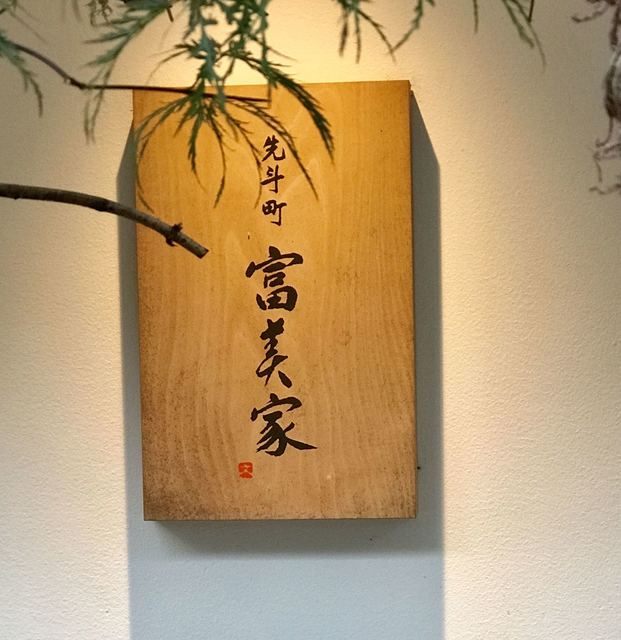 先斗町
富美家